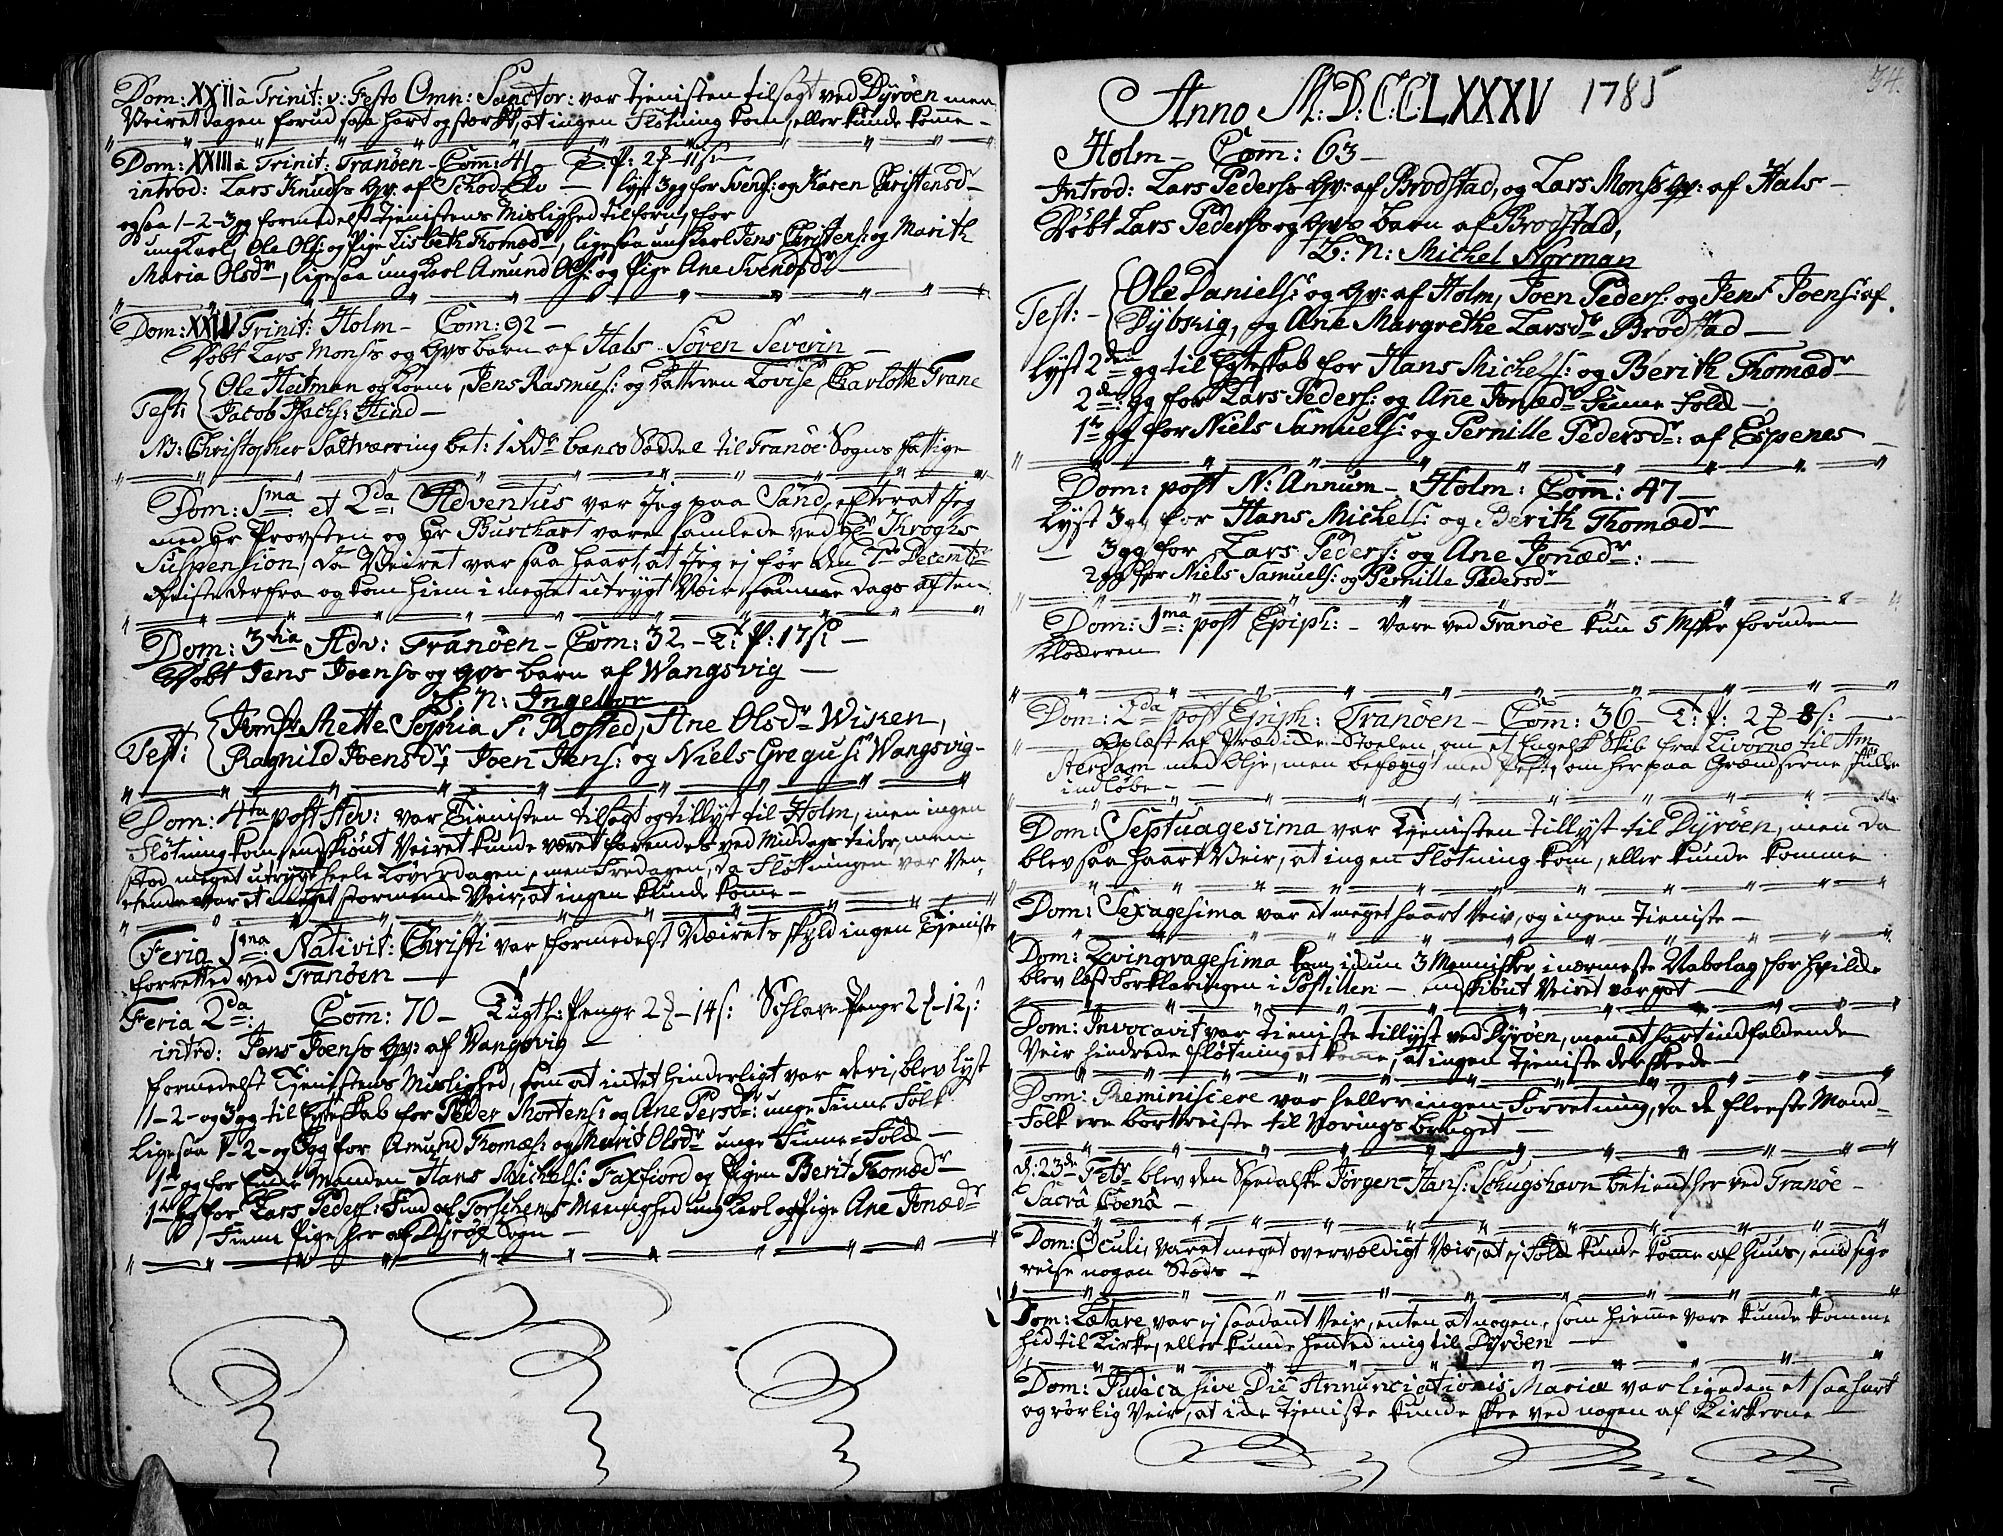 Dom: XXII à Trinit: v: Festo Omn: Sanctor: var Tienisten tilsagt ved Dyrøen men
Veiret dagen forud saa hart og stærkt, at ingen Fløtning kom, eller kunde kom̄e
Dom: XXIII à Trinit: Tranøen – Com: 41 – T. P: 2 – 11 s:
introd: Lars Knuds qv: af Schod – lyst 3 gg for Svens: og Karen Christensd
ogsaa 1-2-3 gg formedelst Tjenistens Mislighed tilforn, for
ungKarl Ole Ols: og Pige Lisbeth Thomædr, ligesaa ungKarl Jens Christens: og Marith
Maria Olsdr, ligesaa ungKarl Amund Ols: og Pige Ane Svendsdr
Dom: XXIV Trinit: Holm – Com: 92 –
Døbt Lars Monss og qvs barn af Hals Søren Severin
Test: Ole Heitman og Kone, Jens Rasmus: og Datteren Lovise Charlotte Trane
Jacob Isachs: Hind
NB: Christopher Saltværring bet: 1 Rdr banco Søddel til Tranøe Sogns fattige
Dom: 1ma et 2da Adventus var Jeg paa Sand, efterat Jeg
med Hr Provsten og Hr Burchart vare samlede ved Hr Kroghs
Suspension, da Veiret var saa haart, at Jeg ej før den 7de Decembr
Reiste derfra og kom hiem i meget utrygt Veir samme dags aften
Dom: 3tia Adv: Tranøen – Com: 32 – T. P: 17 s: –
Døbt Jens Joenss og qvs barn af Wangsvig –
B: N: Ingebor
Test: Jomfr Mette Sophia S. Rosted, Ane Olsdr Wiken,
Ragnild Joensdr, Joen Jens: og Niels Gregus: Wangsvig
Dom: 4ta post Adv: var Tienisten tilsagt og tillyst til Holm, men ingen
Fløtning kom, endskiønt Veiret kunde været forendels ved Middags tider, men
stod meget utrygt heele Løverdagen, men Fredagen, da Fløtningen var ven-
tende var et meget stormende Veir, at ingen kunde kom̄e –
Feria 1ma Nativit: Christi var formedelst Væirets skyld ingen Tjeniste
forrettet ved Tranøen –
Feria 2da: Com̄: 70 – Tugth: Penge 2 – 14 s: Schlave Penge 2 – 12 s:
introd: Jens Joenss qv: af Vangsvig –
formedelst Tjenistens Mislighed, som at intet hinderligt var deri, blev lyst
1-2- og 3 gg til Egteskab for Peder Mortens: og Ane Persdr: unge Finne Folk
Ligesaa 1-2- og 3 gg for Amund Thomæs: og Marit Olsdr unge Finne-Fold
1te gg for Enke Manden Hans Michels: Faxfiord og Pigen Berit Thomædr
1te gg for Lars Peders: Find af Torskens Menighed ung Karl og Pige Ane Jonædr
Finne Pige her af Dyrøe Sogn –
34.
Anno M.D.C.C.LXXXV 1785
Holm – Com̄: 63 –
Introd: Lars Pederss qv: af Brodstad, og Lars Monss qv: af Hals –
Døbt Lars Pederss og qvs barn af Brodstad,
B: N: Michel Norman
Test: Ole Daniels: og qv: af Holm, Joen Peders: og Jens Joens: af
Dybvig, og Ane Margrethe Larsdr Brodstad
Lyst 2den gg til Egteskab for Hans Michels: og Berith Thomædr
2de gg for Lars Peders: og Ane Jonædr Finne Fold
1te gg for Niels Samuels: og Pernille Pedersdr: af Espenes –
Dom: post N: Annum – Holm: Com̄: 47 –
Lyst 3 gg for Hans Michels: og Berith Thomædr
3 gg for Lars Peders: og Ane Jonædr: –
2 gg for Niels Samuels: og Pernille Pedersdr
Dom: 1ma: post Epiph: – Vare ved Tranøe kun 5 Msker foruden
Klokeren
Dom: 2da post Epiph: Tranøen – Com: 36 – T: P: 2 – 8 s: –
Oplæst af Prædike-Stoelen, om et Engelsk Skib fra Livorno til Am
sterdam med Olje, men befængt med Pest, om her paa Grændserne skulle
indløbe –
Dom: Septuagesima var Tjenisten tillyst til Dyrøen, men da
blev saa haart Veir, at ingen Fløtning kom, eller kunde komme
Dom: Sexagesima var et meget haart Veir, og ingen Tieniste –
Dom: Qvinqvagesima kom ikun 3 Mennisker i nærmeste Nabolag, for hvilke
blev læst Forklaringen i Postillen – endskiønt Veiret var got –
Dom: Invocavit var Tieniste tillyst ved Dyrøen, men et hart indfaldende
Veir hindrede Fløtning at kom̄e, at ingen Tjeniste der skede –
Dom: Reminiscere var heller ingen Forretning, da de fleeste Mand-
Folk ere bortreiste til Næringsbruget –
d: 23de Febr blev den Spedalske Jørgen Hans: Skugshavn betient her ved Tranøe –
Sacrâ Coenâ –
Dom: Oculi, var et meget overvældigt Veir, at ej Fold kunde kom̄e af Huus, end sige
reise nogen Stæds –
Dom: Lætare, var ej saadant Veir, enten at nogen, som hiemme vare kunde komme
hid til Kirke, eller kunde hented mig til Dyrøen –
Dom: Judica sive Die Annunciationis Mariæ var ligeden et saa hart
og rørlig Veir, at ike Tjeniste kunde skee ved nogen af Kirkerne